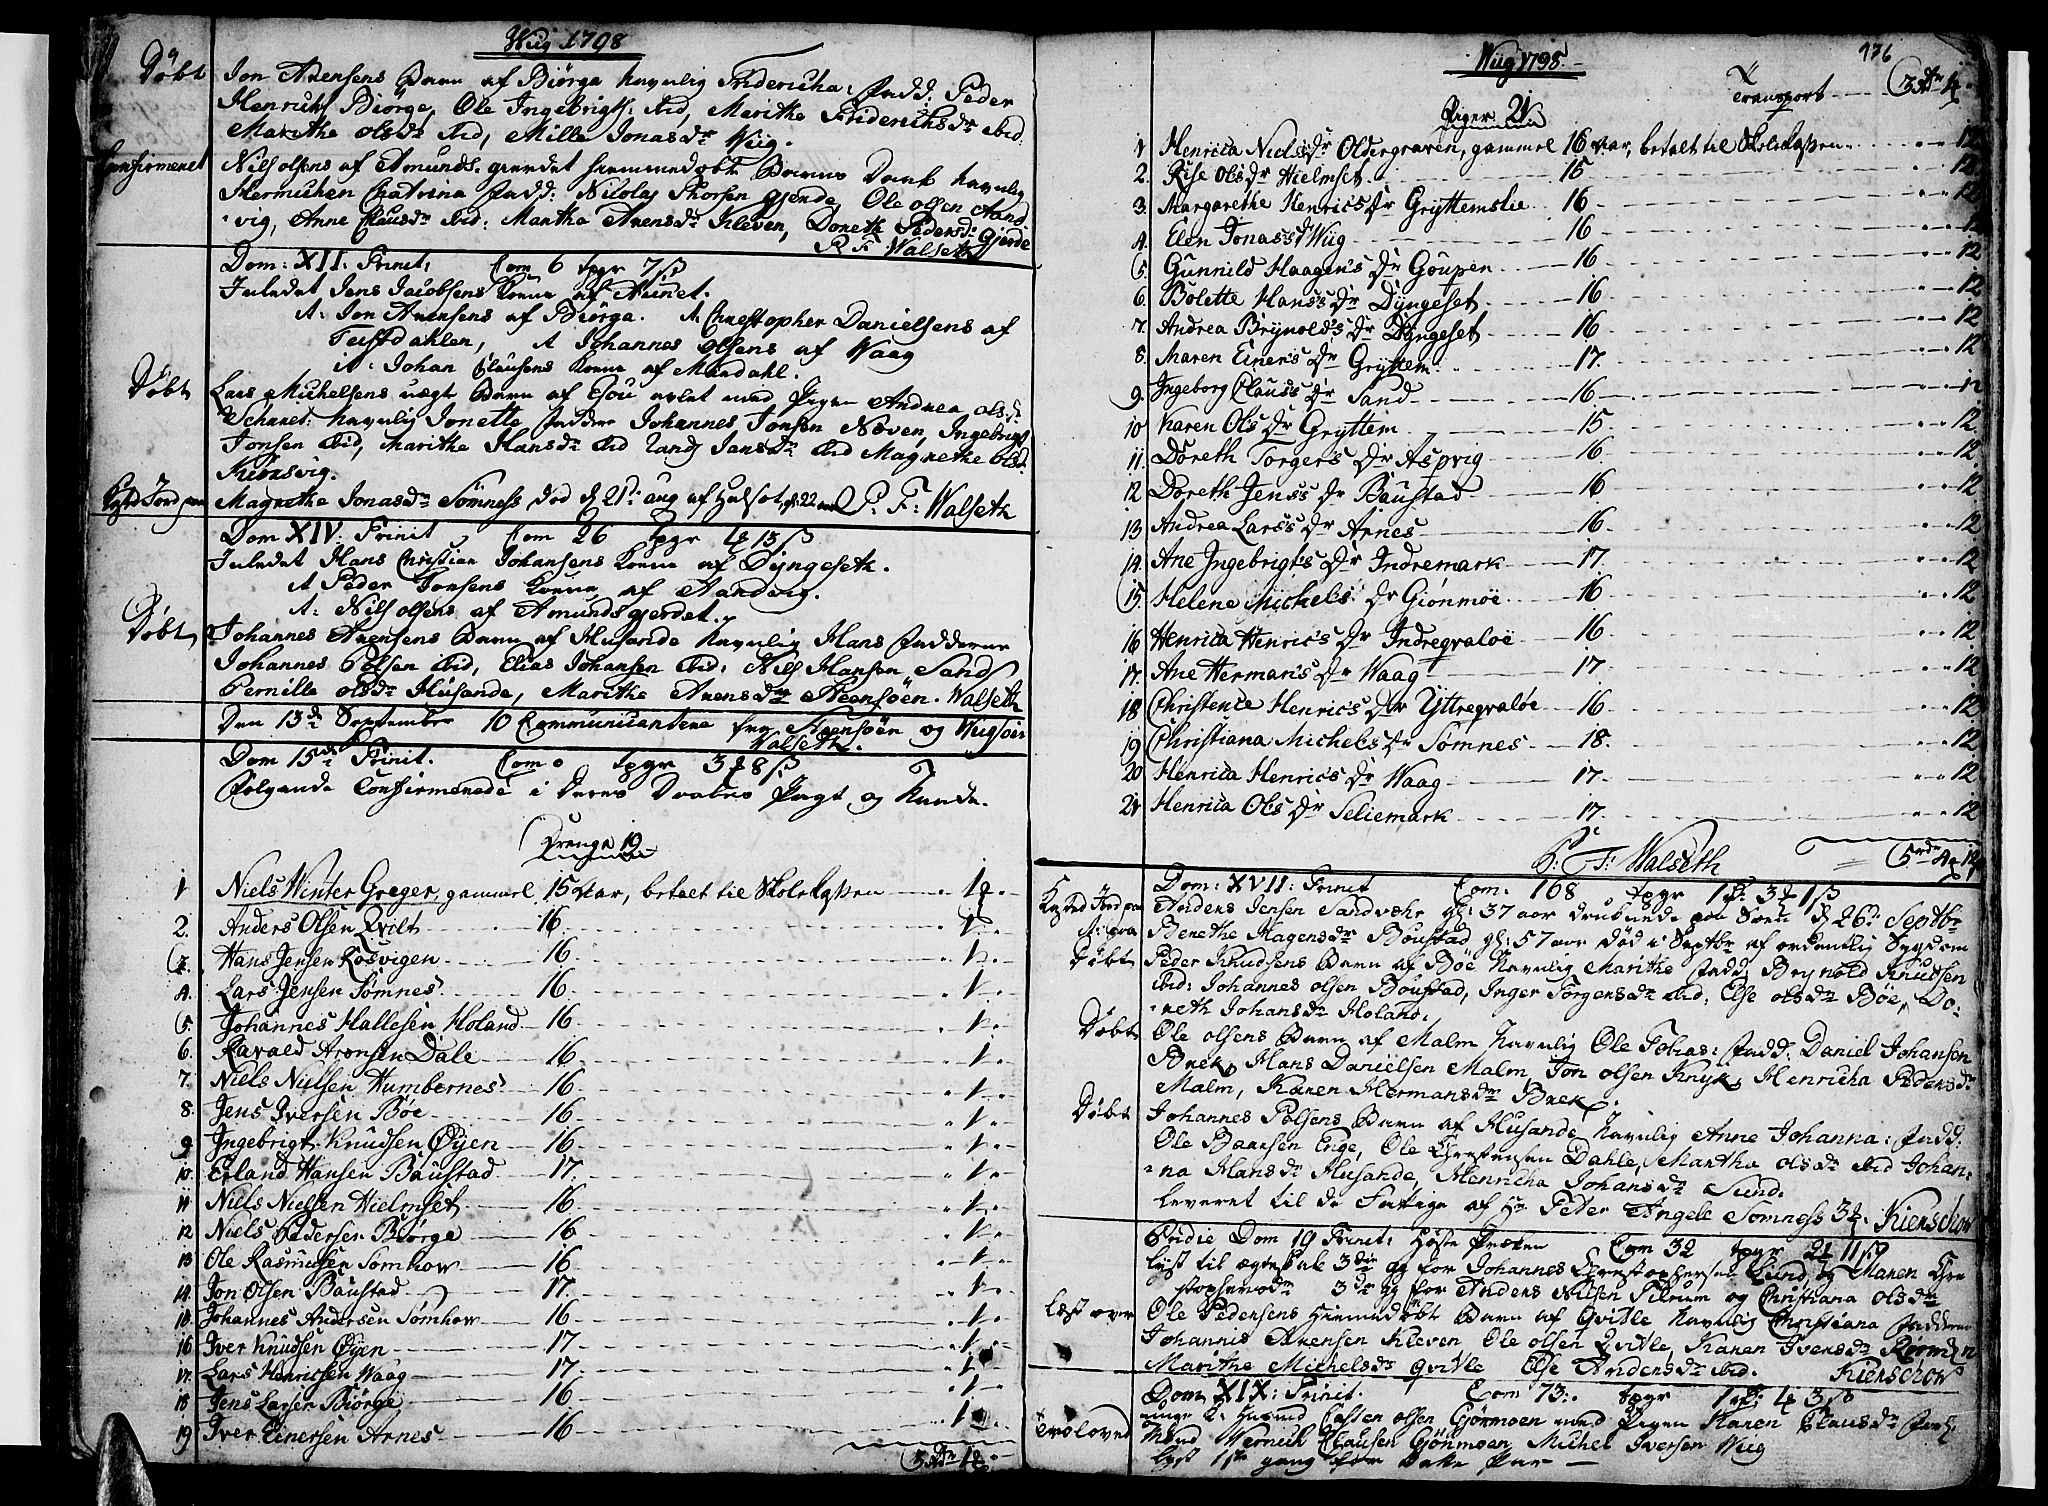 Wiig 1798
Døbt Jon Arensens Barn af Biørga navnlig Friderica: Fadd: Peder
Henrichs Biørge, Ole Ingebrigts: ibid, Marithe Friderichsdr ibid
Marithe olsdr ibid, Mille Jonasdr Wiig.
Confirmeret Nils olsens af Amunds gierdet hiemmedøbte Barns Daab navnlig
Chatrina Fadd: Nicolaj Thorsen Gjerde, Ole olsen Aand
vig, Anne Clausdr ibid: Martha Arensdr Kleven, Doreth Pedersdr Gjerde
P. F. Walseth
Dom: XII: Trinit: Com 6 Tpgr 7ß
Inledet Jens Jacobsens Kone af Aunet.
A: Jon Arensens af Biørga. A: Christopher Danielsens af
Tustdahlen, A Johannes olsens af Waag
A: Johan Clausens Kone af Mandahl.
Døbt Lars Michelsens uægte Barn af avlet med Pigen Andrea olsdr
navnlig Jonette Faddere Johannes Jonsen Næven, Ingebrigt
Jonsen ibid, Marithe Hansdr ibid Jansdr ibid Magrethe olsdr
Kiørsvig.
Kasted Jord paa Magrethe Jonasdr Sømness død d 21de aug af P. F: Walseth
Dom XIV: Trinit Com 26 Tpgr
Inledet Hans Christian Johansens Kone af Dÿngeseth.
A Peder Jonsens Kone af Aandvig.
A: Nils olsens af Amundsgjerdet.
Døbt Johannes Arensens Barn af Husande navnlig Hans Fadderne
Johannes Polsen ibid, Elias Johansen ibid: Nils Hansen Sand
Pernille olsdr Husande, Marithe Arensdr Steensøen. Walseth
Den 13de Septembr 10 Communicantere fra Steensøen og Wiigsøen
Walseth.
Dom 15de Trinit. Com 0 Tpgr
Følgende Confirmerede i Deres Daabes Pagt og Naade.
Drenge 19
1 Niels Winter Greger, gammel 15 aar, betalt til Skolekassen
2. Anders Olsen Qvilt 16
3. Hans Jensen Kosvigen 16
4. Lars Jensen Sømnes 16
5. Johannes Hallesen Holand 16
6. Ravald Aronsen Dale 16
7. Niels Nielsen Humbernes 16
8. Jens Iversen Bøe 16
9 Ingebrigt Knudsen Øÿen 16
10. Erland Hansen Baustad 17.
11 Niels Nielsen Hielmset 16
12 Niels Pedersen Biørge 16
13 Ole Rasmusen Somhow 16
14. Jon Olsen Baustad 17.
15. Johannes Andersen Sømhow 16
16 Iver Knudsen Øÿen 17
17. Lars Henricsen Waag 17
18 Jens Larsen Biørge 16
19 Iver Einersen Arnes 16
Wiig 1798 136
Transport 3 4
Piger 21
1 Henrica Niels Dr Oldergraven, gammel 16 aar, betalt til Skolekassen 12
2. Rise Ols Dr Hielmset 15 12
3. Margarethe Henrics Dr Grÿttemslie 16 12
4. Elen Jonas's Dr Wiig 16 12
5. Gunnild Haagen's Dr Goupen 16 12
6. Bolette Hans's Dr Dÿngeset 16 12
7. Andrea Brÿnold's Dr Dÿngeset 16 12
8. Maren Einer's Dr Grÿttem 17. 12
9. Ingeborg Claus's Dr Sand 16 12
10 Karen Ols Dr Grÿttem 15 12
11. Doreth Torger's Dr Aspvig 16 12
12 Doreth Jens's Dr Baustad 16 12
13 Andrea Lars's Dr Arnes 16 12
14. Ane Ingebrigt's Dr Indremark 17. 12
15. Helene Michels Dr Giønmøe 16 12
16 Henrica Henric's Dr Indregvaløe 16 12
17. Ane Herman's Dr Waag 17. 12
18 Christence Henric's Dr Yttregvaløe 16 12
19 Christiana Michels Dr Sømnes 18. 12
20 Henrica Henric's Dr Waag 17. 12
21 Henrica Ols Dr Seliemark 17. 12
P: F: Walseth
Dom: XVII: Trinit Com. 168 Tpgr
Kasted Jord paa Anders Jensen Sandvehr gl: 37 aar druknede paa Søen d 26de Septbr
Berethe Hagensdr Boustad gl: 57 aar død i Septbr af ordentlig Sygdom
Døbt Peder Knudsens Barn af Bøe navnlig Marithe Fadd: Brynold Knudsen
ibid: Johannes olsen Boustad, Inger Torgersdr ibid, Else olsdr Bøe, Do-
reth Johansdr Holand.
Døbt Ole olsens Barn af Malm navnlig Ole Tobias: Fadd: Daniel Johansen
Bræk, Hans Danielsen Malm, Jon olsen Knyk, Henricha Pedersdr
Malm, Karen Hermansdr Bræk.
Døbt Johannes Polsens Barn af Husande navnlig Anne Johanna: Fadd:
Ole Baarsen Enge, Ole Christensen Dahle, Martha olsdr ibid Johan-
na Hansdr Husande, Henricha Johansdr Sund.
leveret til de Fattige af Hr Peder Angele Sømness Kierschow
Pridie Dom 19 Trinit: Høste Præken Com 32 Tpgr
lyst til ægteskab 3die gg for Johannes Christophersen Lund og Maren Chri
stophersdr 3die gg for Anders Nilsen Silrum og Christiana olsdr
Læst over Ole Pedersens Hiemmedøbt Barn af Qvitle navnlig Christiana Fadderne
Johannes Arensen Kleven Ole olsen Qvitle, Karen Iversdr
Marithe Michelsdr Qvitle Else Andersdr ibid. Kierschow
Dom: XIX: Trinit. Com 73: Tpgr
Trolovet unge K: Casten olsen Giørmoen med Pigen Karen Clausdr
Mænd Wernich Clausen Giønmoen Michel Iversen Wiig
lyst 1ste gang for Dette Par